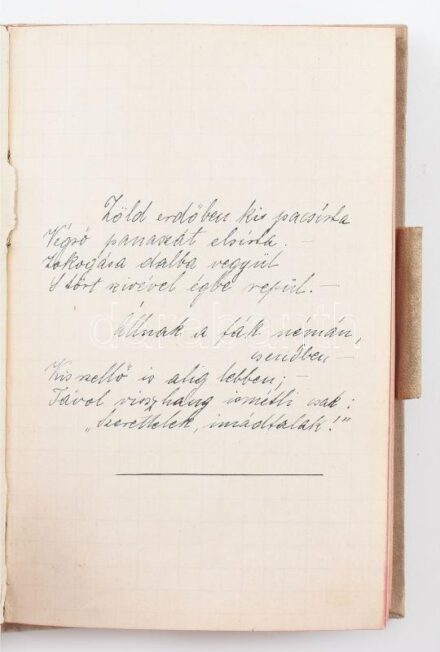 Zöld erdőben kis pacsirta
Végső panaszát elsírta. –
Zokogása dalba vegyül
S tört szivével égbe repül. –
Állnak a fák némán,
csendben –
Kis szellő is alig lebben; –
Távol visszhang ismétli csak:
„Szerettelek, imádtalak!"
darabanth